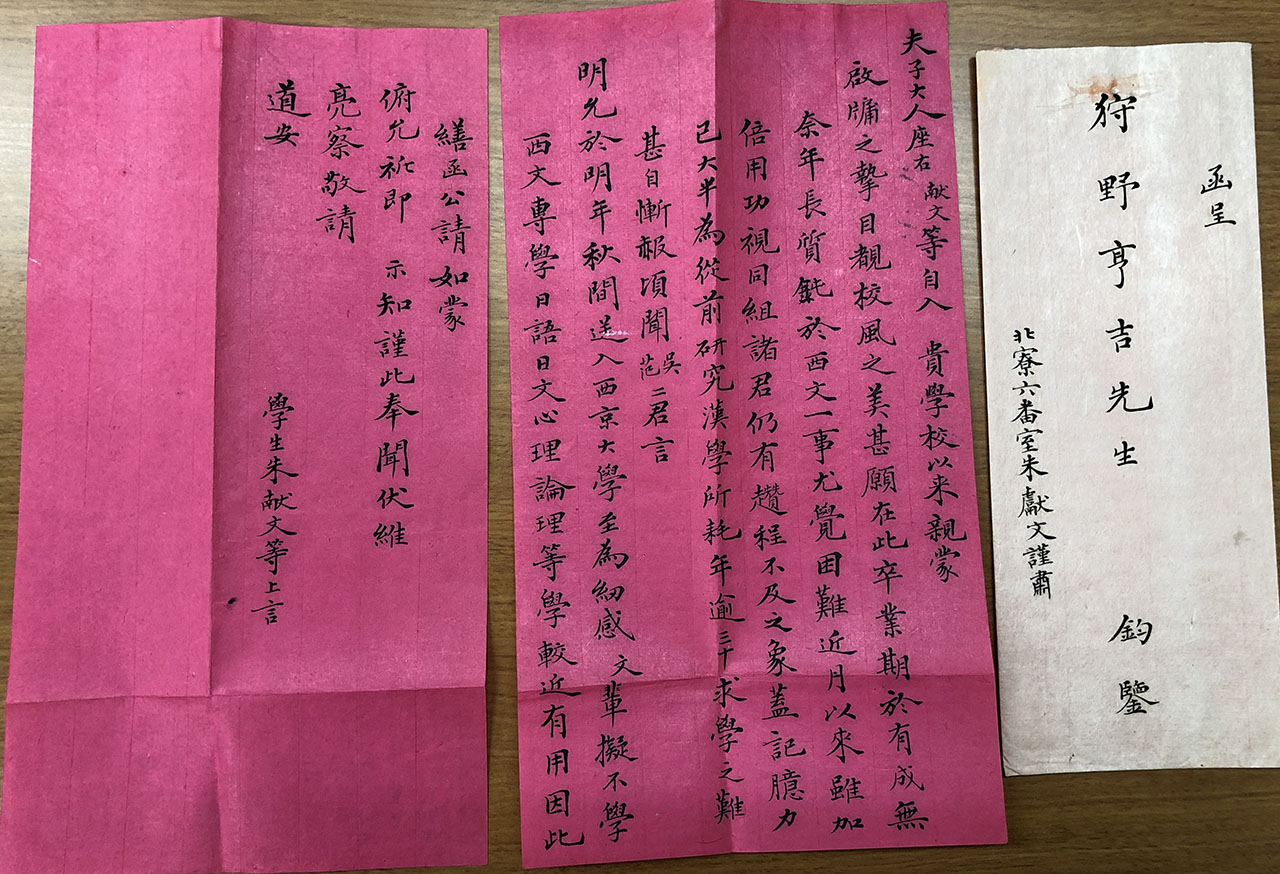 函呈
狩野亨吉先生 鈞鑒
北寮六番室朱獻文謹肅
夫子大人座右献文等自入 貴學校以来親蒙
啟牖之摯目覩校風之美甚願在此卒業期於有成無
奈年長質鈍於西文一事尤覺困難近月以來雖加
倍用功視同組諸君仍有趲程不及之象蓋記臆力
已大半為從前研究漢學所耗年逾三十求學之難
甚自慚赧頃聞吳范二君言
明允於明年秋間送入西京大學至為紉感文輩擬不學
西文專學日語日文心理論理等學較近有用因此
繕函公請如蒙
俯允祈即 示知謹此奉聞伏維
亮察敬請
道安
學生朱献文等上言